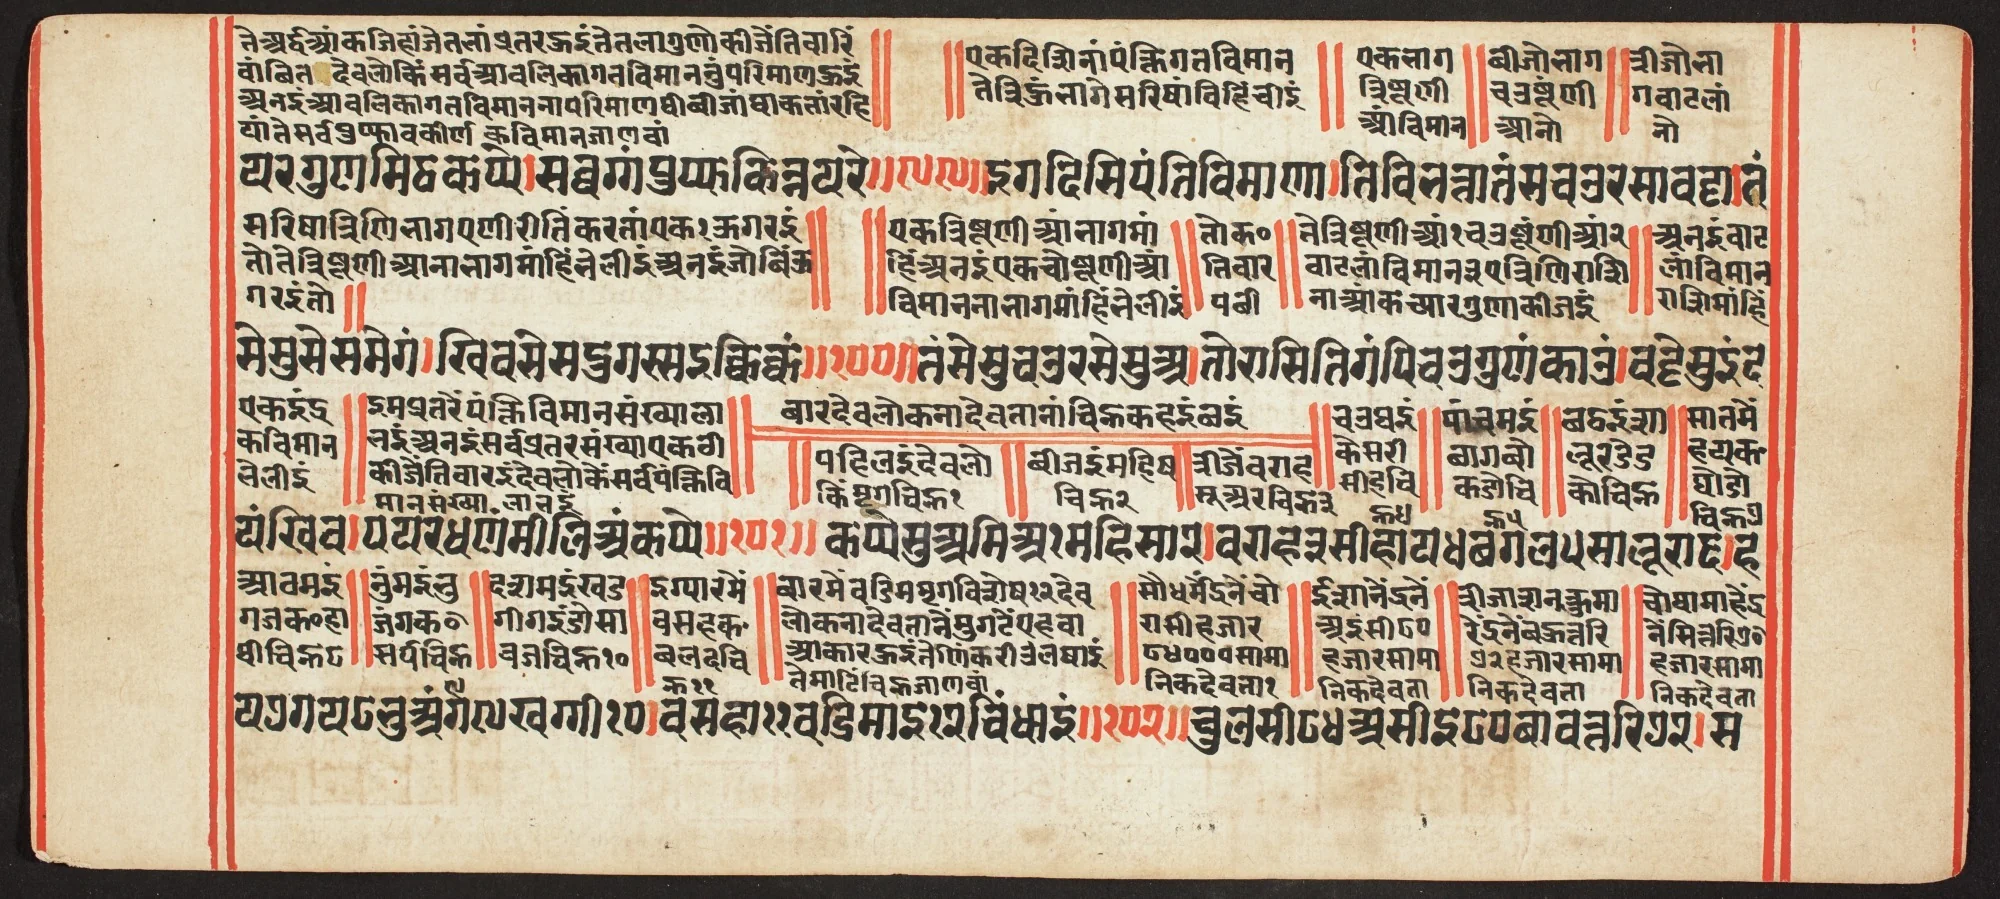 तेअर्द्धआंकजिहांजैतलांप्रतरऊइंतेतलागुणोकीजैंतिवारिं
वांबित देवलोकिंसर्वआवलिकागतविमाननुंपरिमाणऊइं
अनइंआवलिकागतविमाननापरिमाणथीबीजांथाकतांरहि
यांतेसर्वपुष्फावकीर्ण्ण कविमानजाणवां
एकदिशिनांपंक्तिगतविमान
तेत्रिऊंलागेसरिषांविहिंचीइं
एकलाग
त्रिष्णूणी
आंविमान
बीजोलाग
चउष्णूंणी
आनो
त्रीजोला
गवाटलां
नो
यरगुणमिठकप्पे।सव्वग्गंपुप्फकिन्नयरे॥९९॥इगदिसिपंतिविमाणा।तिविनत्तातंसचउरसावट्टा।तं
सरिषात्रिणिलागएणीरीतिंकरतांएक१ऊगरइं
तोतेत्रिष्णूणीआनालागमांहिंलेलीइंअनइंजोबिंऊ
गरइंतो
एकत्रिष्णूणीआंलागमां
हिंअनइंएकचोष्णूणीआं
विमाननालागमांहिंलेलीइं
तोक०
तिवार
पबी
तेत्रिष्णूणीआं१चउष्णूंणीआं२
वाटलांविमान३एत्रिणिराशि
नाआंकच्यारगुणाकीजइं
अनइंवाट
लांविमान
राशिमांहिं
सेसुसेसमेगं।खिवसेसदुगस्सइक्किक्कं॥१००॥तंसेसुचउरसेसुअ।तोरासितिगंपिचउगुणंकाउं।वट्टेसुइंद
एकइंद्र
कविमान
लेलीइं
इमप्रतरेंपंक्तिविमानसंख्याला
लइंअनइंसर्वप्रतरसंख्याएकठी
कीजैंतिवारइंदेवलोकेंसर्वपंक्तिवि
मानसंख्या लालइं
बारदेवलोकनादेवतानांचिह्नकहइंबइं
पहिलइंदेवलो
किंमृगचिह्न१
बीजइंमहिष
चिह्न२
त्रीजैंवराह
सूअरचिह्न३
चउथइं
केसरी
सीहचि
ह्न४
पांचमइं
बागबो
कडोचि
ह्न५
बठइंशा
लूरडेड
कोचिह्न
सातमें
हयक०
घोडो
चिह्न७
यंखिव।पयरधणंमीलिअंकप्पे॥१०१॥ कप्पेसुअमिअ१महिसा२।वराह३सीहाय४बगल५सालूराद।ह
आवमइं
गजक०हा
थीचिह्न८
नुंमइंभु
जंगक०
सर्पचिह्न
दशमइंखड
गीगइंडोसा
वजचिह्न१०
इग्यारमें
वसहक०
बलदचि
ह्न११
बारमेंवडिममृगविशेष१२देव
लोकनांदेवतानेंमुगटेंएहवा
आकारऊइंतेणिंकरीउलषाइं
तेमाटिंचिह्नजाणवां
सौधर्मेंद्रनेंचो
रासीहजार
८४०००सामा
निकदेवता१
ईशानेंद्रनें
अइंसी८०
हजारसामा
निकदेवता
त्रीजाशनत्कुमा
रेंद्रनेंबऊत्तरि
७२हजारसामा
निकदेवता
चोथामाहेंद्र
नेंसित्तरि७०
हजारसामा
निकदेवता
य७गय८भुअंग९खग्गी१०।वसहा११वडिमाइ१२चिंधाइं॥१०२॥चुलसी८४असीइ८०बावत्तरि७२।स